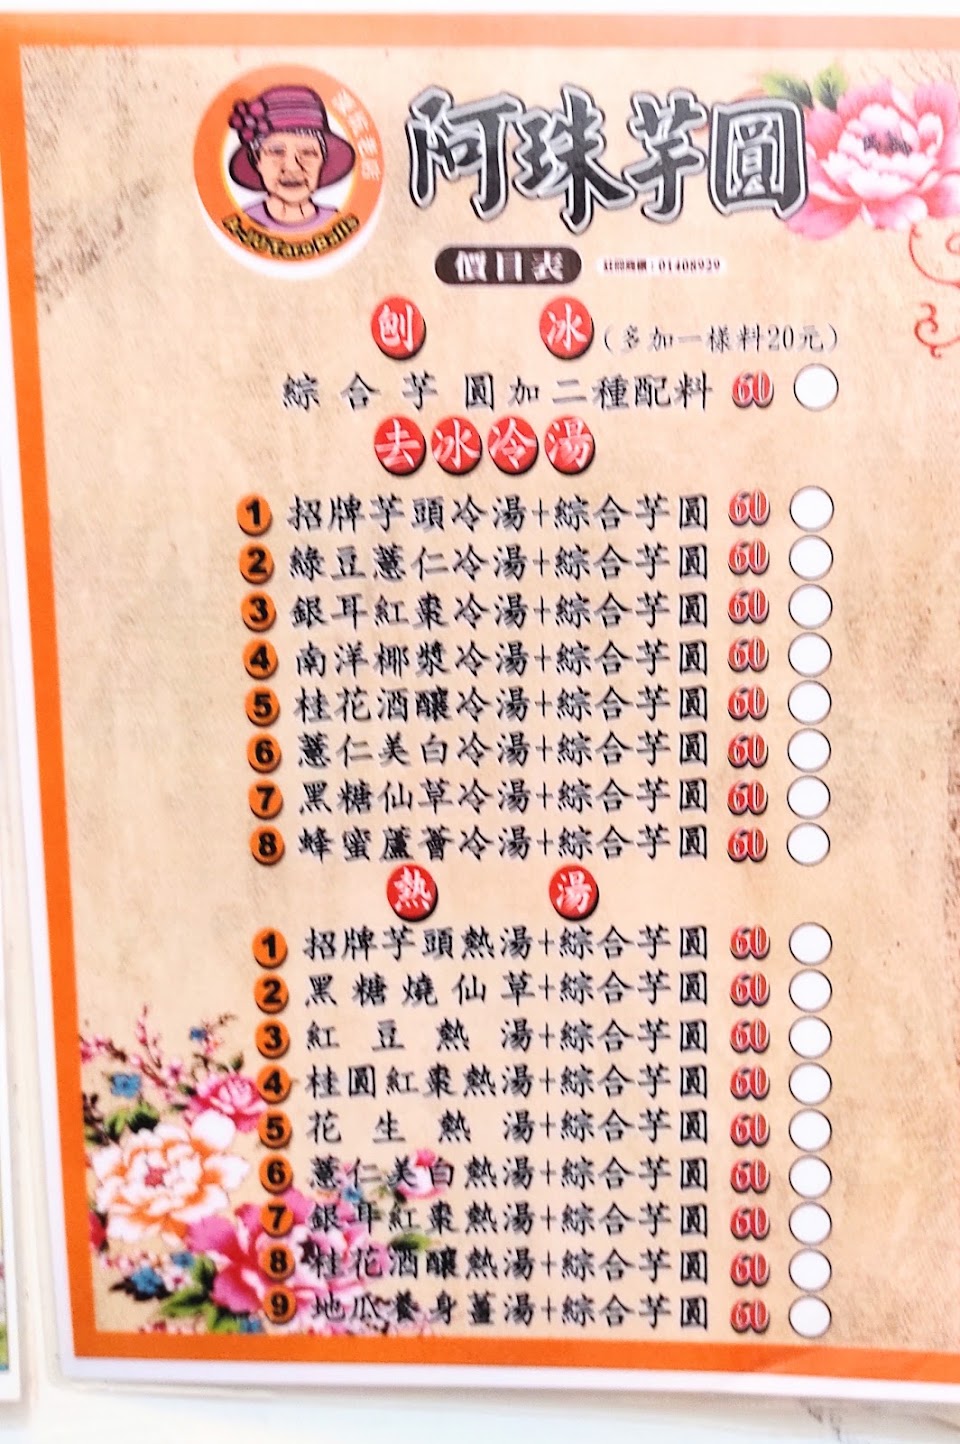 A-JU Taro Balls
阿珠芋圓
價目表
註冊商標:01408929
刨冰(多加一樣料20元)
綜合芋圓加二種配料 60
去冰冷湯
1 招牌芋頭冷湯+綜合芋圓 60
2 綠豆薏仁冷湯+綜合芋圓 60
3 銀耳紅棗冷湯+綜合芋圓 60
4 南洋椰漿冷湯+綜合芋圓 60
5 桂花酒釀冷湯+綜合芋圓 60
6 薏仁美白冷湯+綜合芋圓 60
7 黑糖仙草冷湯+綜合芋圓 60
8 蜂蜜蘆薈冷湯+綜合芋圓 60
熱湯
1 招牌芋頭熱湯+綜合芋圓 60
2 黑糖燒仙草+綜合芋圓 60
3 紅豆熱湯+綜合芋圓 60
4 桂圓紅棗熱湯+綜合芋圓 60
5 花生熱湯+綜合芋圓 60
6 薏仁美白熱湯+綜合芋圓 60
7 銀耳紅棗熱湯+綜合芋圓 60
8 桂花酒釀熱湯+綜合芋圓 60
9 地瓜養身薑湯+綜合芋圓 60